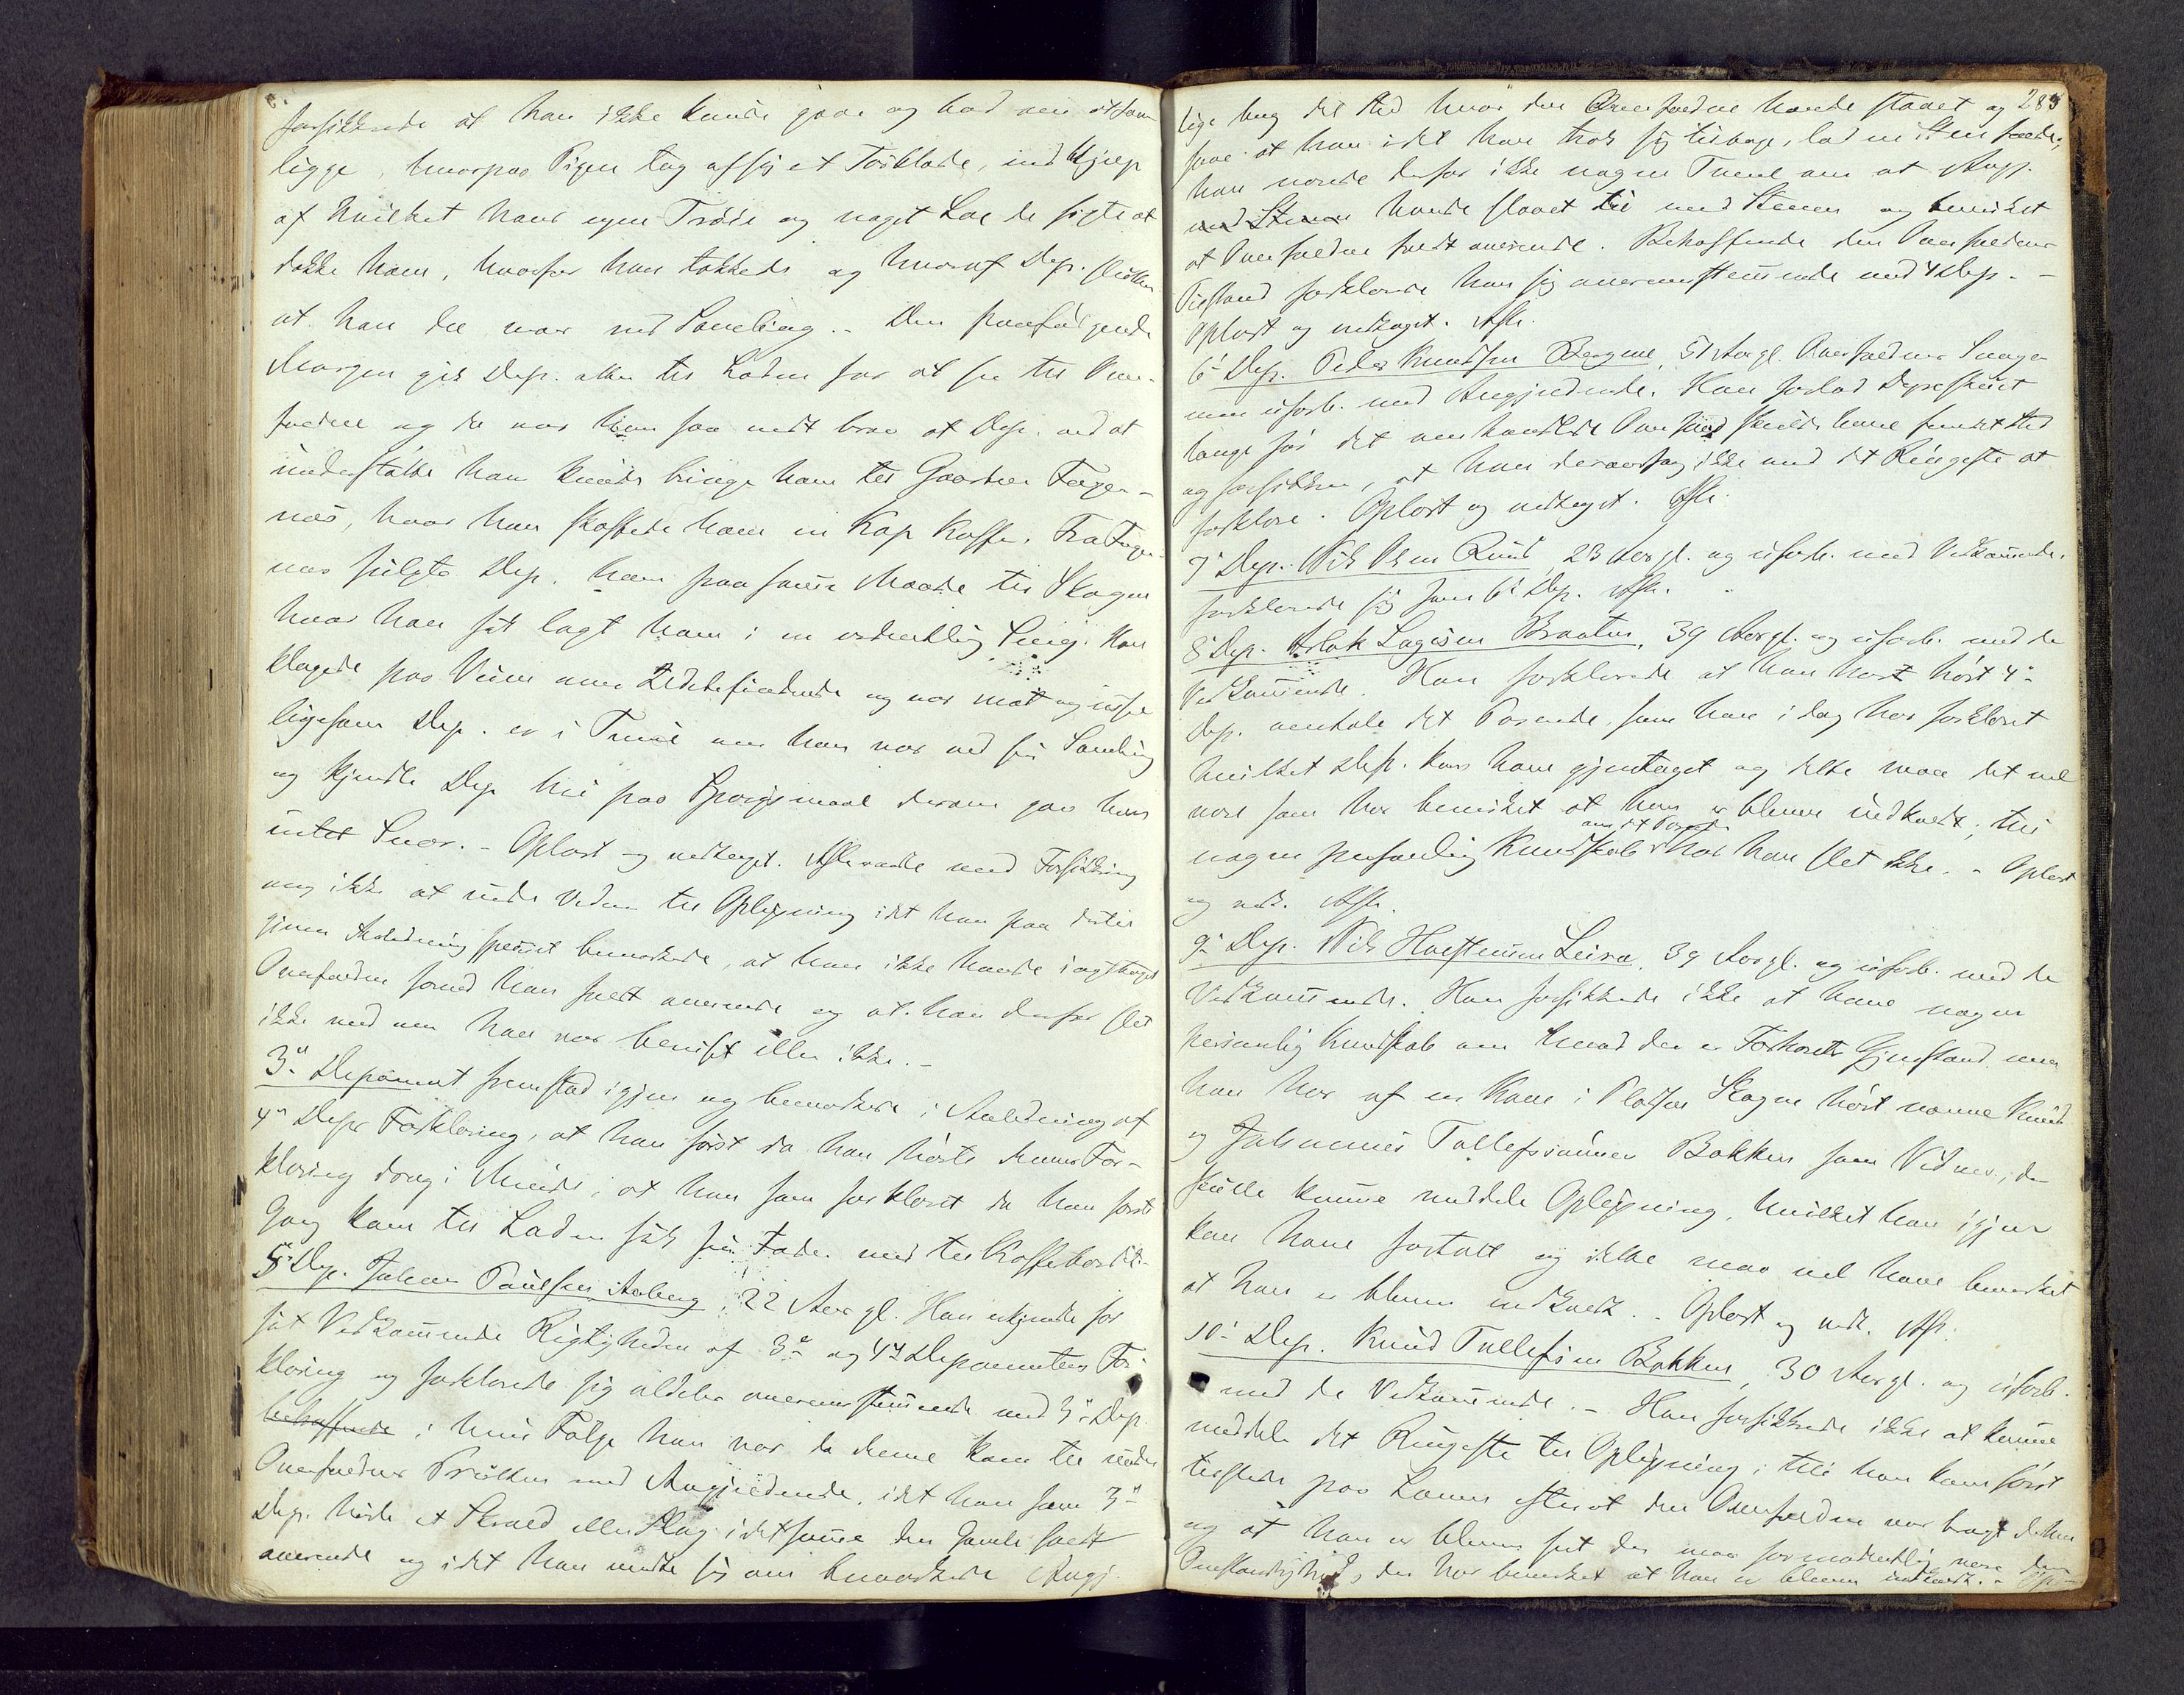 forsikkrede at han ikke kunde gaae og bad om at faae
ligge, hvorpaa Pigen tog af sig et Tørklæde, ved Hjælp
af hvilket hans egen Trøie og noget Løv de søgte at
dække ham, hvorfor han takkede og hvoraf Dep. slutter
at han da var ved Samling. - Den paafølgende
Morgen gik Dep. atter til Laden for at see til Over-
faldne og da var han saa vidt brav at Dep. ved at
understøtte ham kunde bringe ham til Gaarden Fager-
næs, hvor han skaffede ham en Kop Kaffe. Fra Fager-
næs fulgte Dep. ham paa samme Maade til Skagen
hvor han fik lagt ham i en ordentlig Seng. Han
klagede paa Veien over Ildebefindende og var mat og
ligesom Dep. er i Tvivl om han var ved sin Samling
og kjendte Dep. thi paa Spørgsmaal derom gav han
intet Svar. - Oplæst og vedtaget. Afstraadte med Forsikkring
om ikke at vide Videre til Oplysning idet han paa dertil
given Anledning specielt bemærkede, at han ikke havde iagttaget
Overfaldne forend han faldt overende og at han derfor slet
ikke ved om han var beruset eller ikke. -
3die Deponent fremstod igjen og bemærkede i Anledning af
4de Deps Forklaring, at han først da han hørte dennes For-
klaring drog i Minde, at han som forklaret da han første
Gang kom til Laden fik sin Fader med til Kaffebordet. -
5te Dep. Johan Paulsen Aaberg, 22 Aar gl. Han erkjendte for
sit Vedkommende Rigtigheden af 3die og 4de Deponenters For-
klaring og forklarede sig aldeles overensstemmende med 3die Dep.
behoffende i hvis Følge han var da denne kom til under
Overfaldnes Prütten med Angjældende, idet han som 3die
Dep. hørte et Skrald eller Slag i det samme den Gamle faldt
overende og idet han vendte sig om bemærkede Angj.
283
lige bag det Sted hvor den Overfaldne havde staaet og
saae at han idet han trak sig tilbage, lod en Steen falde;
han nærede derfor ikke nogen Tvivl om at Angj.
med Stenen havde slaaet til med Stenen og bevirket
at Overfaldne faldt overende. Behoffende den Overfaldnes
Tilstand forklarede han sig overensstemmende med 4 Dep. -
Oplæst og vedtaget. Aftr.
6te Dep. Peder Knudsen Bergene, 51 Aar gl. Overfaldnes Svoger
men uforb. med Angjældende. Han forlod Depeskuet
længe før det omhandlede Overfald skulde have fundet Sted
og forsikkrer, at han desaarsag ikke ved det Ringeste at
forklare. Oplæst og vedtaget. Aftr.
7de Dep. Nils Olsen Ruud, 23 Aar gl. og uforb. med Vedkommende.
forklarede sig som 6te Dep. Aftr.
8de Dep. Aslak Lagesen Braaten, 39 Aar gl. og uforb. med de
Vedkommende. Han forklarede at han har hørt 4de
Dep. omtale det Passerede, som han i dag har forklaret
hvilket Dep. kan have gjentaget og dette maa det vel
være som har bevirket at han er bleven indkaldt; thi
om det Passerede
nogen personlig Kundskab har han slet ikke. - Oplæst
og vedt. Aftr.
9de Dep. Nils Halstensen Leira, 39 Aar gl. og uforb. med de
Vedkommende. Han forsikkrede ikke at have nogen
personlig Kundskab om hvad der er Forhørets Gjenstand men
han har af en Kone i Pladsen Skagen hørt nævne Knud
og Johannes Tollefssønner Bakken som Vidner, der
skulle kunne meddele Oplysning, hvilket han igjen
kan have fortalt og dette maa vel have bevirket
at han er bleven indkaldt. - Oplæst og vedt. Aftr.
10de Dep. Knud Tollefsen Bakken, 30 Aar gl. og uforb.
med de Vedkommende. - Han forsikkrede ikke at kunne
meddele det Ringeste til Oplysning; thi han kom først
tilstede paa Laaven efterat den Overfaldne var bragt derhen
og at han er bleven seet der maa formodentlig være den
Omstændighed, der har bevirket at han er bleven indkaldt. -